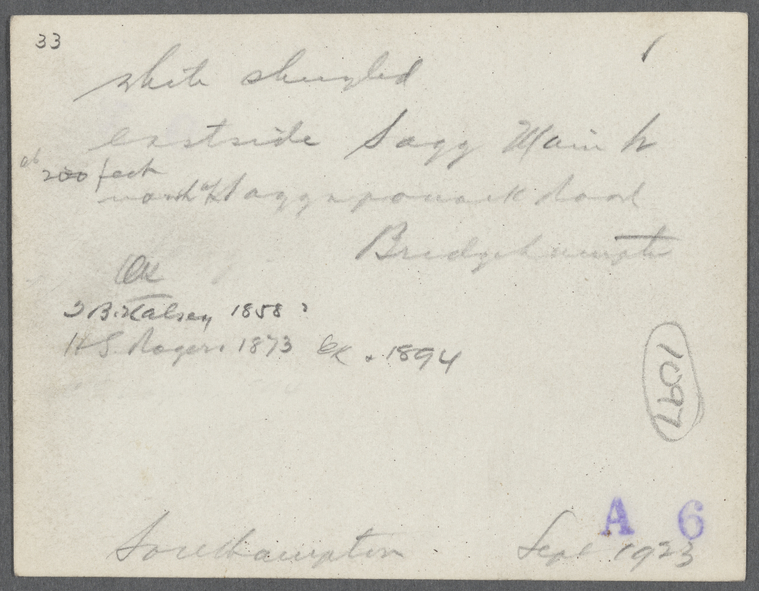 33
white shingled
eastside Sagg Main
ab 200 feet
north of Saggaponack Road
Bridgehampton
OK
B. Halsey 1858 ?
H S. Rogers 1873 OK. 1894
1097
A 6
Southampton Sept 1923